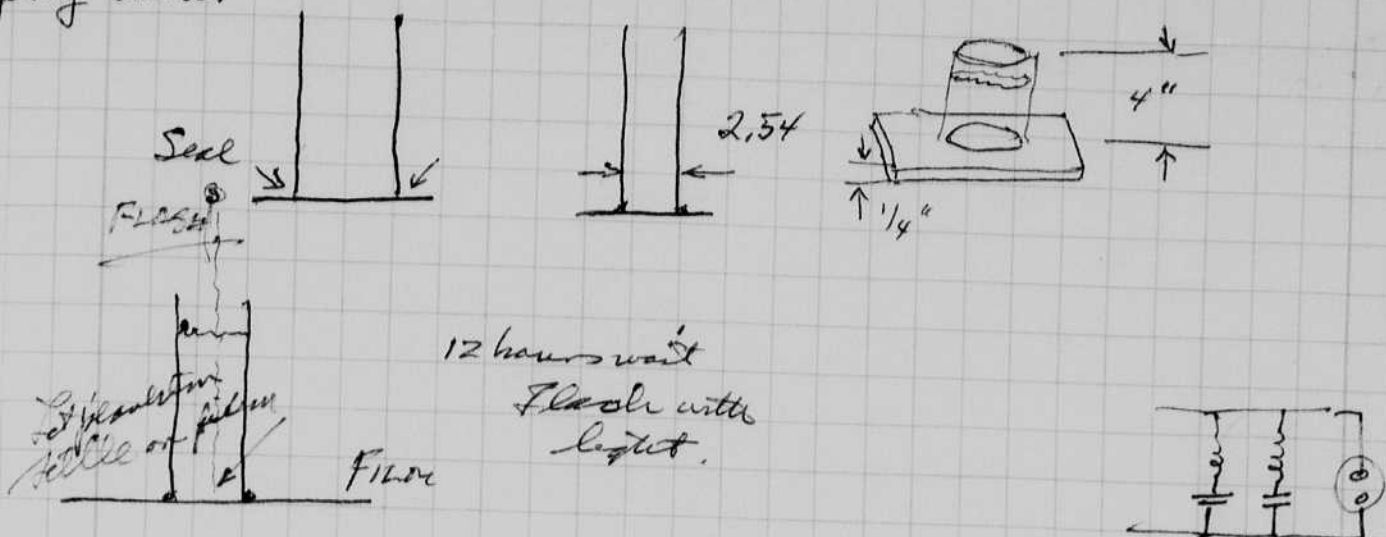 Seal
2.54
4"
1/4"
FLASH
12 hours wait
Flash with
light.
Let plankton
settle on film
FILM